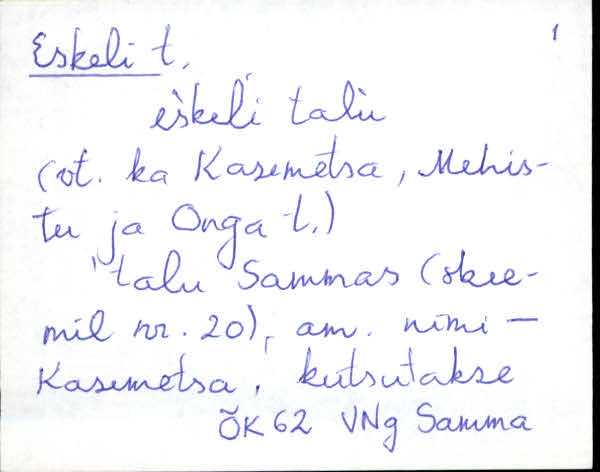 1
Eskeli t.
èskeli talu
(vt. ka Kasemetsa, Mehis-
tu ja Onga t.)
talu Sammas (skee-
mil nr. 20), am. nimi —
Kasemetsa, kutsutakse
ÕK 62 VNg Samma